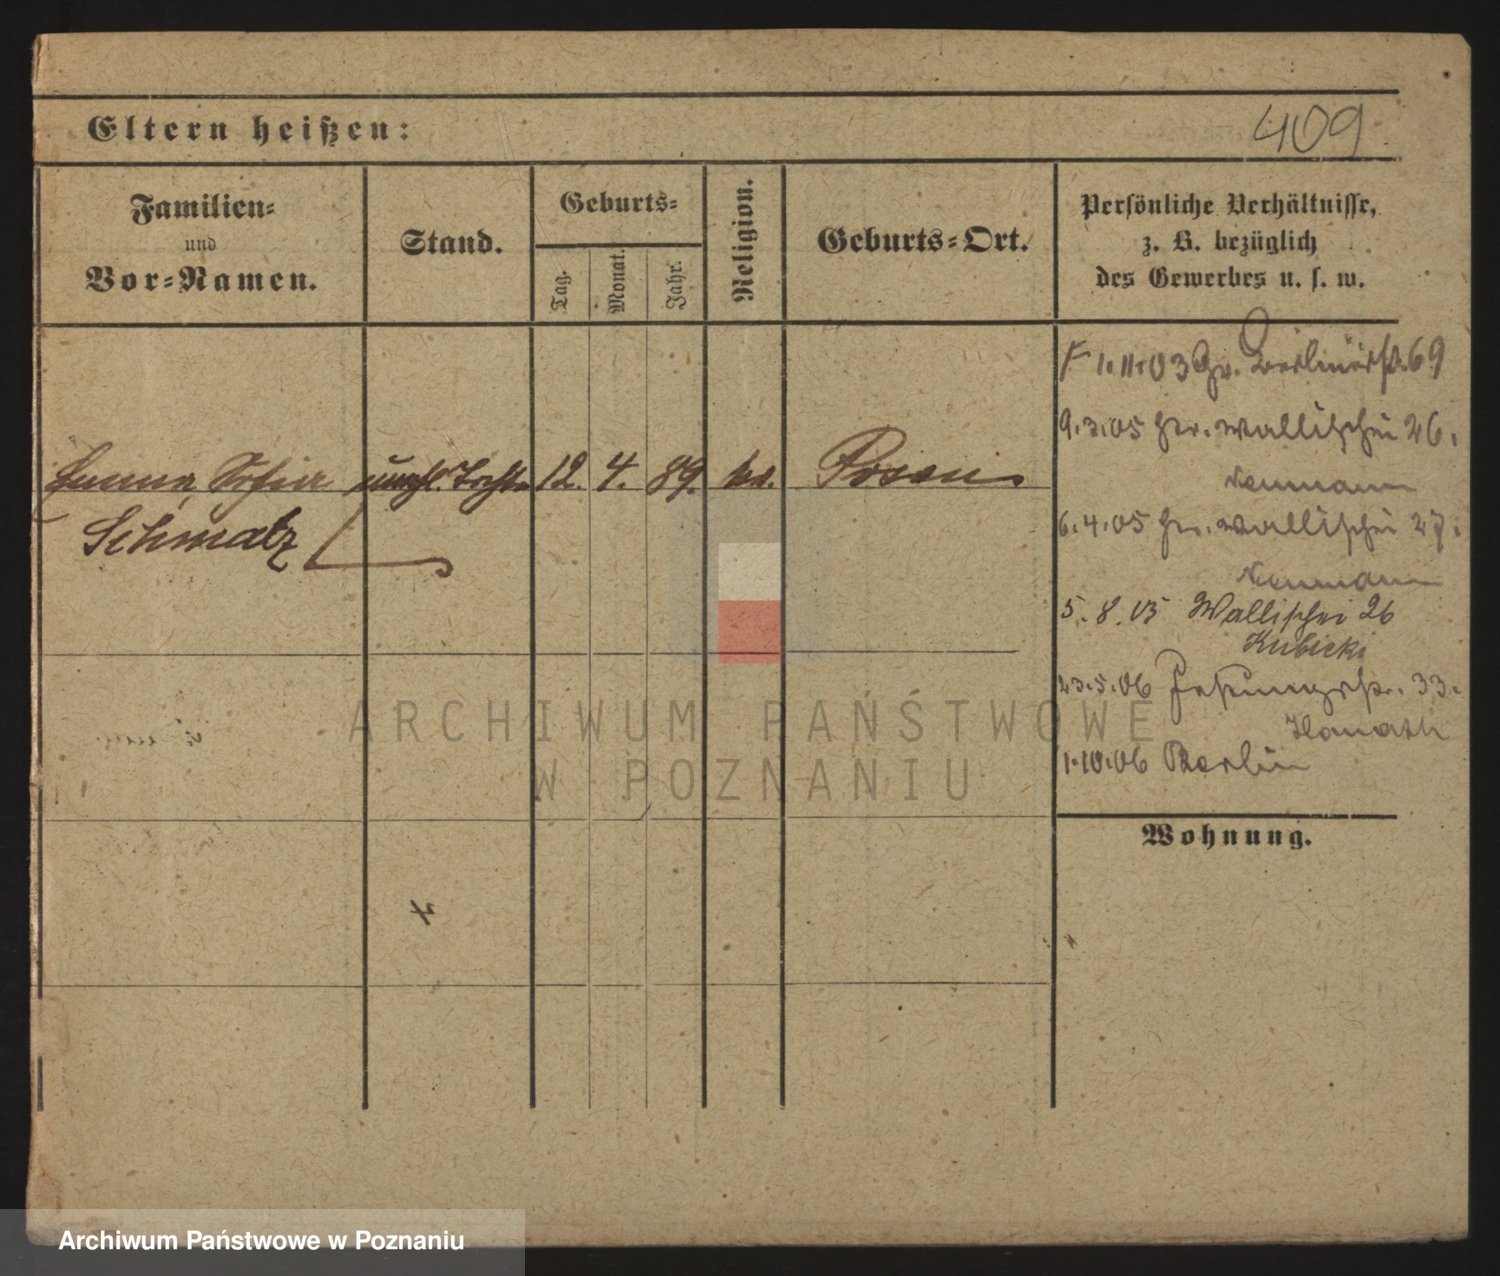 Eltern heißen:
409
Familien=
und
Vor=Namen.
Stand.
Geburts=
Tag.
Monat.
Jahr.
Religion.
Geburts=Ort.
Persönliche Verhältnisse,
z. B. bezüglich
des Gewerbes u. s. w.
Schmalz
unehl. Tocht.
12. 4. 89.
Posen
1.11.03 Gr. Berlinerstr. 69
9.3.05 Gr. Wallischei 26.
Neumann
6.4.05 Gr. Wallischei 27.
Neumann
5.8.05 Wallischei 26
Kubicki
23.5.06 Festungsstr. 33.
1.10.06 Berlin
Wohnung.
4
ARCHIWUM PAŃSTWOWE
W POZNANIU
Archiwum Państwowe w Poznaniu